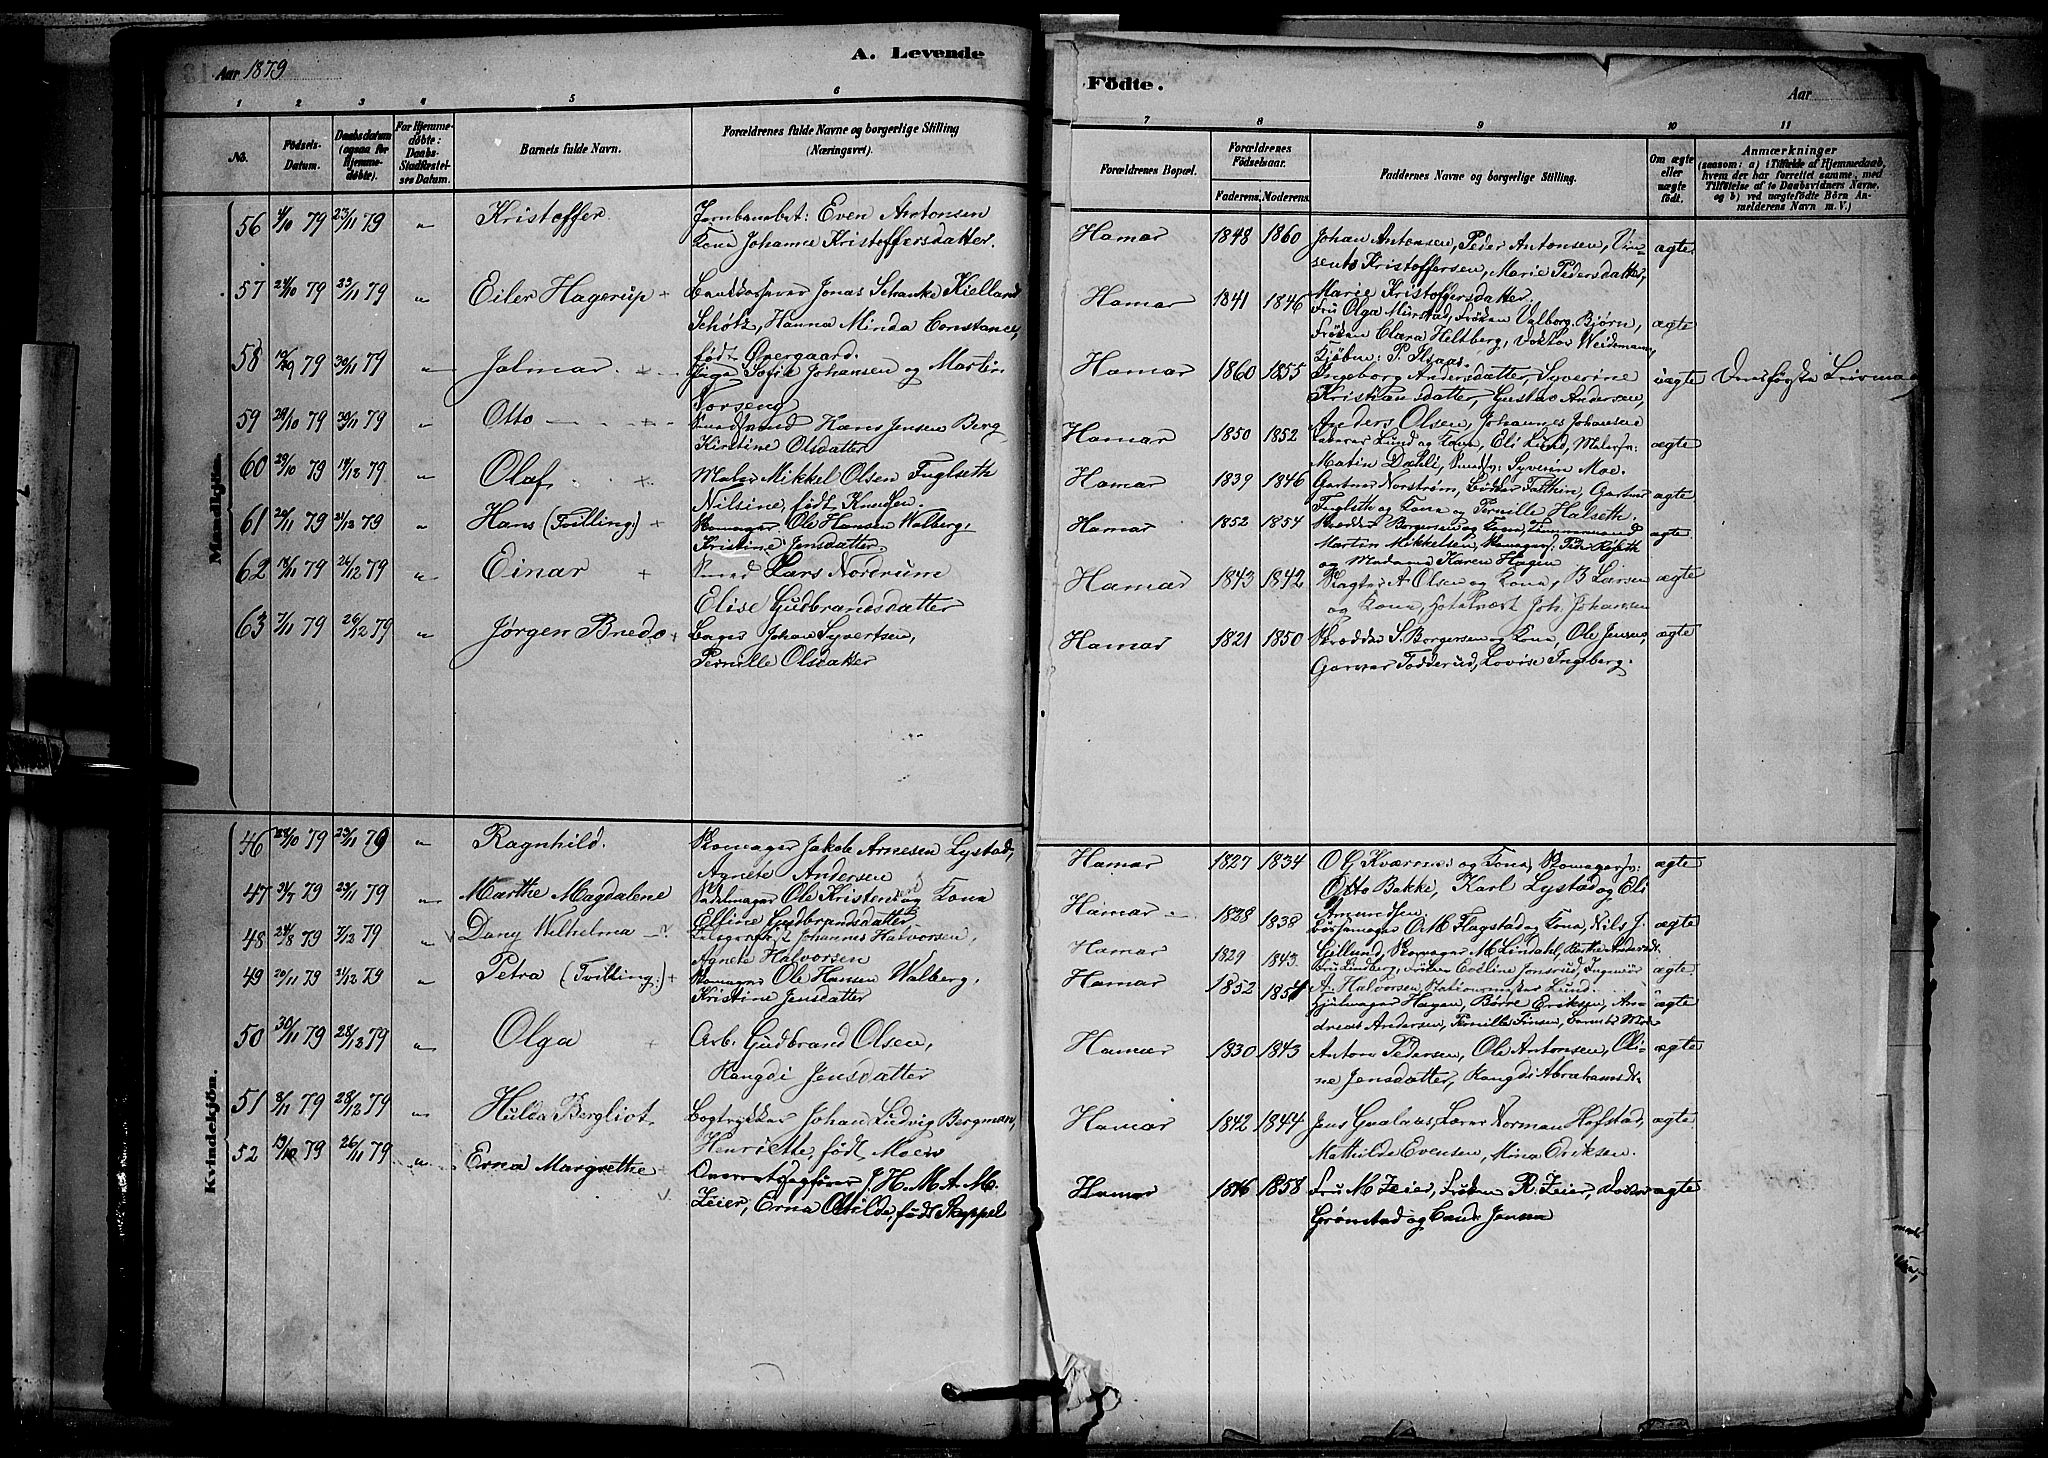 Aar 1879
A. Levende
Födte.
Aar
1 2 3 4 5 6 7 8 9 10 11
No. Födsels-Datum. Daabsdatum (ogsaa for Hjemmedöbte). For Hjemmedöbte: Daabs-Stadfæstelses Datum. Barnets fulde Navn. Forældrenes fulde Navne og borgerlige Stilling (Næringsvei).
Forældrenes Bopæl. Forældrenes Födselsaar. Faderens. Moderens. Faddernes Navne og borgerlige Stilling. Om ægte eller uægte födt. Anmærkninger
(saasom: a) i Tilfælde af Hjemmedaab, hvem der har forrettet samme, med Tilföielse af to Daabsvidners Navne, og b) ved uægtefödte Börn Anmelderens Navn m. V.)
Mandkjön.
56 4/10 79 23/11 79 " Kristoffer. Jernbanebet: Even Antonsen
Kona Johanne Kristoffersdatter.
Hamar 1848 1860 Johan Antonsen, Peder Antonsen, Vin-
sents Kristoffersen, Marie Pedersdatter,
Marie Kristoffersdatter.
ægte
57 23/11 79 " Eiler Hagerup + Jonas Schanke Kielland
Schøtz, Hanna Minda Constance,
født Overgaard.
Hamar 1841 1846 Fru Olga Mürstad, Frøken Valborg Bjørn,
Frøken Clara Heltberg, Doktor Weidemann,
Kjøbm: P.
ægte
58 30/11 79 " Jalmar Inga Sofie Johansen og Martin
Norseng
Hamar 1860 1855 Ingeborg Andersdatter, Syverine
Kristiansdatter, Gustav Andersen,
Anders Olsen, Johannes Johansen
uægte
59 29/10 79 30/11 79 " Otto Hans Jensen Berg
Kirstine Olsdatter
Hamar 1850 1852 Lund og Kona, Eli Lund, Malersv:
Matin Dæhli, Syverin Moe.
ægte
60 29/10 79 14/12 79 " Olaf Maler Mikkel Olsen Fuglseth
Nilsine, født Knudsen.
Hamar 1839 1846 Gartner Norstrøm, Gartner
Fuglseth og Kona og Pernille Halseth.
ægte
61 20/11 79 21/12 79 " Hans (Tvilling:) + Skomager Ole Hansen Walberg,
Kristine Jensdatter.
Hamar 1852 1854 Skrædder Borgersen og Kona, Tømmermand
Martin Mikkelsen,
og Madame Karen Hagen
ægte
62 17/11 79 26/12 79 " Einar + Smed Lars Nordrum
Elise Gudbrandsdatter
Hamar 1843 1842 Slagter A Olsen og Kona, B Larsen
og Kona, Joh. Johansen
ægte
63 7/11 79 26/12 79 " Jørgen Bredo + Bager Johan Syvertsen,
Pernille Olsdatter
Hamar 1821 1850 Skrædder S. Borgersen og Kona, Ole Jensen,
Garver Fodderud, Lovise Ingeberg.
ægte
Kvindekjön.
46 28/10 79 23/11 79 " Ragnhild. Skomager Jakob Arnesen Lystad,
Agnete Andersen
Hamar 1827 1834 O G Kværnes og Kona, Skomagersv:
Otto Bakke, Karl Lystad og Eli
Amundsen.
ægte
47 23/11 79 " Marthe Magdalene Sadelmager Ole Kristensen og Kona
Elline Gudbrandsdatter
Hamar 1828 1838 O. M. Flagstad og Kona, Nils J.
Gillund, Skomager M. Lindahl,
ægte
48 24/8 79 7/12 79 " Dany Wilhelma Telegrafist Johannes Halvorsen,
Agnete Halvorsen
Hamar 1829 1843 Fru Lindberg, Frøken Eveline Jonsrud, Ingeniør
A. Halvorsen, Lund.
ægte
49 20/11 79 21/12 79 " Petra (Tvilling:) + Skomager Ole Hansen Walberg,
Kristine Jensdatter
Hamar 1852 1854 Hjulmager Hagen, Børre Eriksen, An-
dreas Andersen, Pernille
ægte
50 30/11 79 28/12 79 " Olga Arb. Gudbrand Olsen,
Rangdi Jensdatter
Hamar 1830 1843 Anton Pedersen, Ole Antonsen, Oli-
ne Jensdatter, Rangdi Abrahamsdt.
ægte
51 8/11 79 28/12 79 " Hulda Bergliot. Bogtrykker Johan Ludvig Bergman,
Henriette, født Moen
Hamar 1842 1844 Jens Lærer Norman Hofstad,
Mathilde Evensen, Mina Eriksen.
ægte
52 19/10 79 26/11 79 " Erna Margrethe Overretssagfører J. H. M. A. M.
Zeier, Erna Otilde, født Skeppel
Hamar 1846 1858 Fru M. Zeier, Frøken R. Zeier, Doktor
Grønstad og Cand. Jensen
ægte